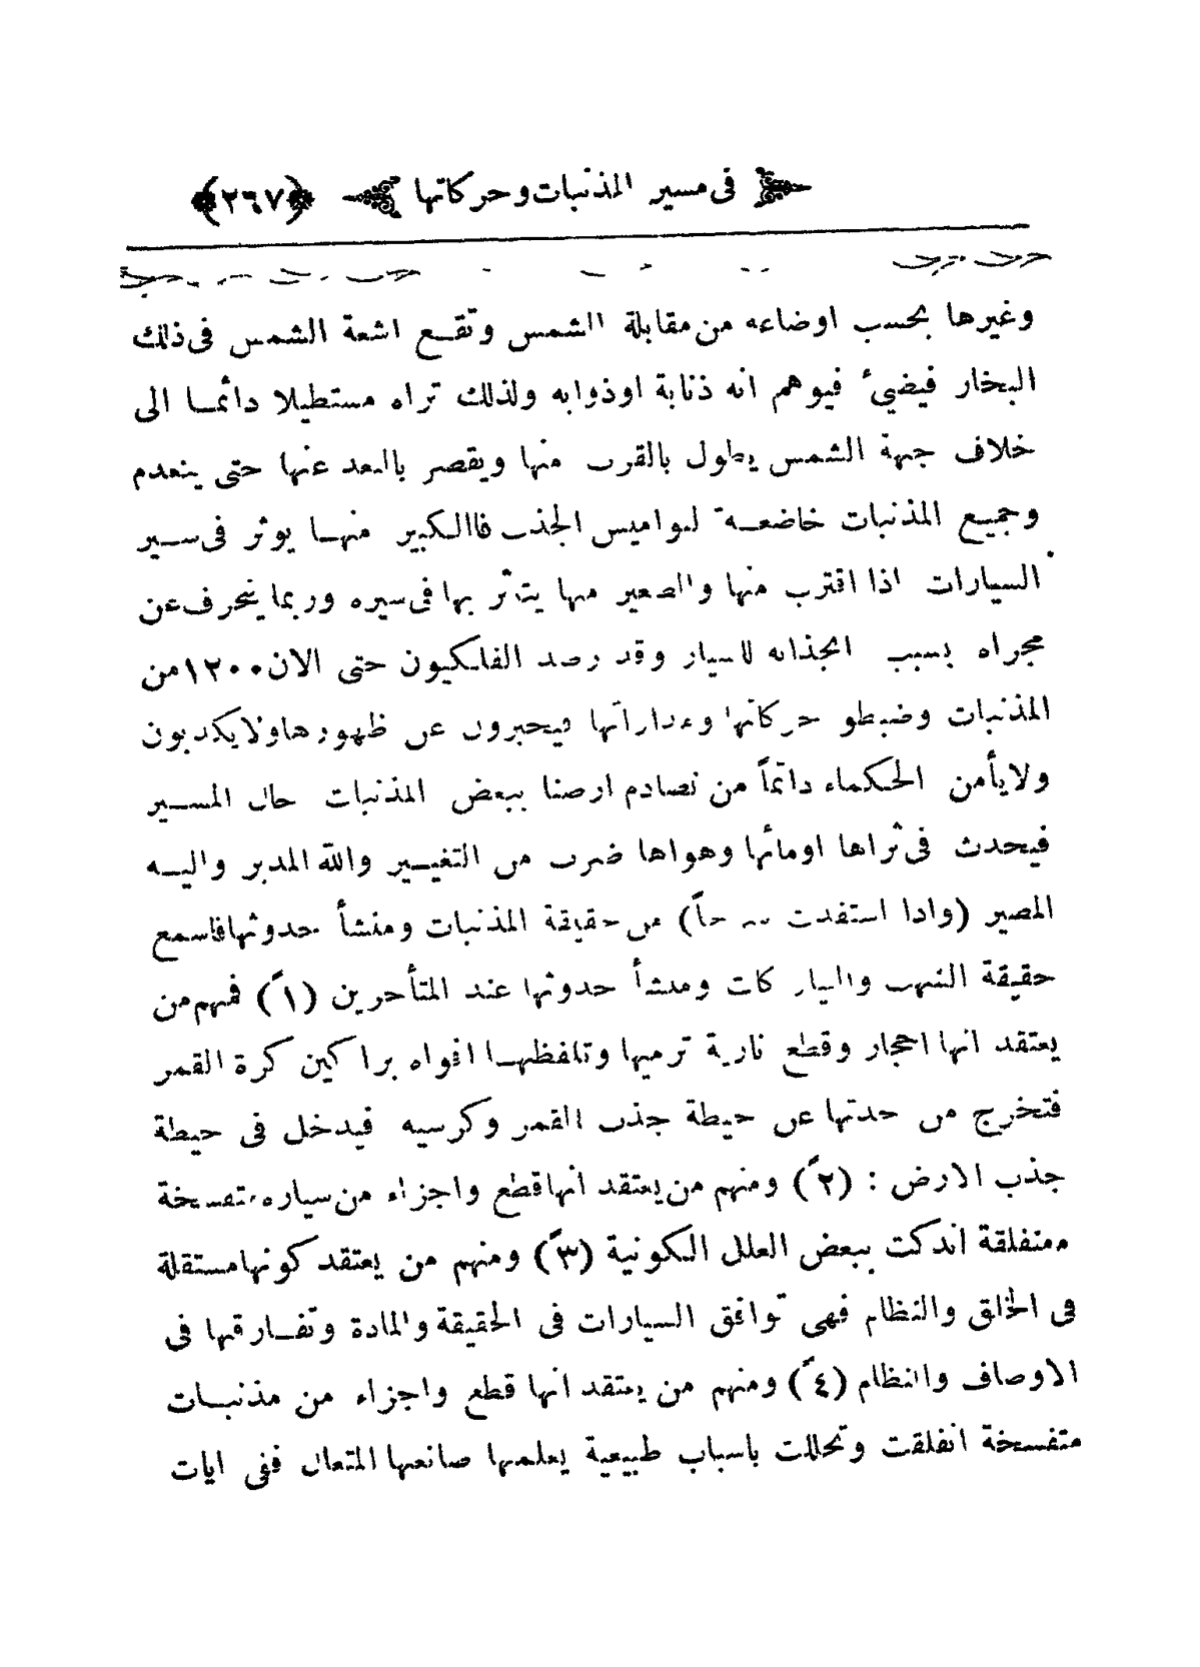 في مسير المذنبات وحركاتها ﴿٢٦٧﴾
وغيرها بحسب اوضاعه من مقابلة الشمس وتقع اشعة الشمس فى ذلك
البخار فيضيئ فيوهم انه ذنابة اوذوابه ولذلك تراه مستطيلا دائما الى
خلاف جهة الشمس يطول بالقرب منها ويقصر بالبعد عنها حتى ينعدم
وجميع المذنبات خاضعة لنواميس الجذب فاالكبير منها يوثر فى سير
السيارات اذا اقترب منها والصغير منها يتأثر بها فى سيره وربما ينحرف عن
مجراه بسبب انجذابه للسيار وقد رصد الفلكيون حتى الان ١٢٠٠ من
المذنبات وضبطو حركاتها ومداراتها فيخبرون عن ظهورها ولايكذبون
ولايأمن الحكماء دائماً من تصادم ارضنا ببعض المذنبات حال المسير
فيحدث فى ثراها اومائها وهواها ضرب من التغيير والله المدبر واليه
المصير (واذا استفدت حاً) من حقيقة المذنبات ومنشأ حدوثها فاسمع
حقيقة الشهب والنيازكات ومنشأ حدوثها عند المتأخرين (١ً) فمنهم من
يعتقد انها احجار وقطع نارية ترميها وتلفظها افواه براكين كرة القمر
فتخرج من حدتها عن حيطة جذب القمر وكرسيه فيدخل فى حيطة
جذب الارض : (٢ً) ومنهم من يعتقد انها قطع واجزاء من سياره متفسخة
متفلقة اندكت ببعض العلل الكونية (٣ً) ومنهم من يعتقد كونها مستقلة
فى الخلق والنظام فهى توافق السيارات فى الحقيقة والمادة وتفارقها فى
الاوصاف والنظام (٤ً) ومنهم من يعتقد انها قطع واجزاء من مذنبات
متفسخة انفلقت وتحللت باسباب طبيعية يعلمها صانعها المتعال ففى ايات